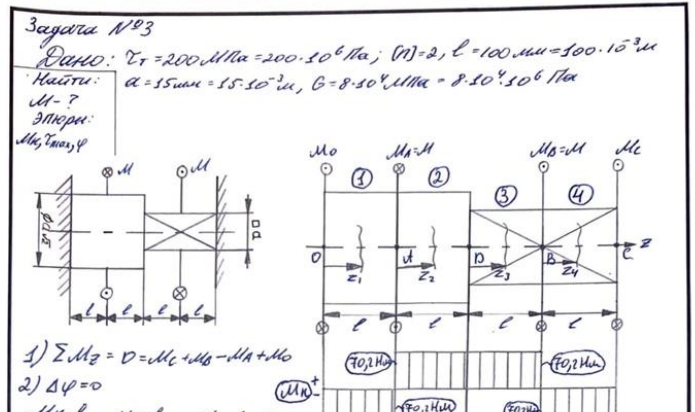 Задача №3
Дано: τт=200МПа=200·10⁶Па; [n]=2, l=100мм=100·10⁻³м
Найти: a=15мм=15·10⁻³м, G=8·10⁴МПа=8·10⁴·10⁶Па
M-?
Эпюры:
Mк, τmax, φ
M M
a
l l l l
M₀ MA=M MB=M MC
1 2 3 4
O A D B C z
z₁ z₂ z₃ z₄
l l l l
1) ΣMz=0=MC+MB-MA+M₀
2) Δφ=0
70,2Нм 70,2Нм
Mк + -
70,2Нм 70,2Нм